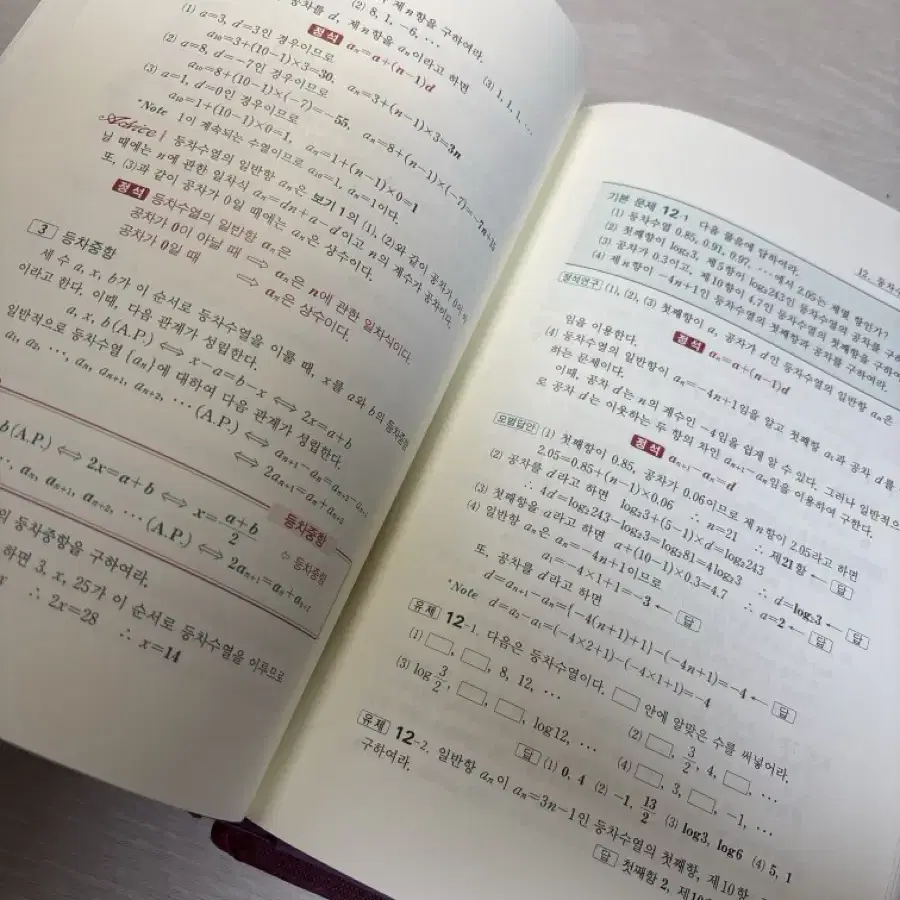 제n항을 구하여라.
(2) 8, 1, −6, ⋯
(3) 1, 1, 1, ⋯
등차를 d, 제n항을 aₙ이라고 하면
정석 aₙ=a+(n−1)d
(1) a=3, d=3인 경우이므로
a₁₀=3+(10−1)×3=30, aₙ=3+(n−1)×3=3n
(2) a=8, d=−7인 경우이므로
a₁₀=8+(10−1)×(−7)=−55, aₙ=8+(n−1)×(−7)=−7n+15
(3) a=1, d=0인 경우이므로
a₁₀=1+(10−1)×0=1, aₙ=1+(n−1)×0=1
*Note 1이 계속되는 수열이므로 a₁₀=1, aₙ=1이다.
Advice 등차수열의 일반항 aₙ은 보기 1의 (1), (2)와 같이 공차가 0이
닐 때에는 n에 관한 일차식 aₙ=dn+a−d이고 n의 계수가 공차이다.
또, (3)과 같이 공차가 0일 때에는 aₙ은 상수이다.
정석 등차수열의 일반항 aₙ은
공차가 0이 아닐 때 ⟹ aₙ은 n에 관한 일차식이다.
공차가 0일 때 ⟹ aₙ은 상수이다.
3 등차중항
세 수 a, x, b가 이 순서로 등차수열을 이룰 때, x를 a와 b의 등차중항
이라고 한다. 이때, 다음 관계가 성립한다.
a, x, b (A.P.) ⟺ x−a=b−x ⟺ 2x=a+b
일반적으로 등차수열 {aₙ}에 대하여 다음 관계가 성립한다.
a₁, a₂, ⋯, aₙ, aₙ₊₁, aₙ₊₂, ⋯ (A.P.) ⟺ aₙ₊₁−aₙ=aₙ₊₂−aₙ₊₁
⟺ 2aₙ₊₁=aₙ+aₙ₊₂
등차중항
b (A.P.) ⟺ 2x=a+b ⟺ x=(a+b)/2 ⇦ 등차중항
⋯, aₙ, aₙ₊₁, aₙ₊₂, ⋯ (A.P.) ⟺ 2aₙ₊₁=aₙ+aₙ₊₂
의 등차중항을 구하여라.
하면 3, x, 25가 이 순서로 등차수열을 이루므로
∴ 2x=28 ∴ x=14
12. 등차수
기본 문제 12-1 다음 물음에 답하여라.
(1) 등차수열 0.85, 0.91, 0.97, ⋯에서 2.05는 제몇 항인가?
(2) 첫째항이 log₂3, 제5항이 log₂243인 등차수열의 공차를 구하
(3) 공차가 0.3이고, 제10항이 4.7인 등차수열의 첫째항을 구하여
(4) 제n항이 −4n+1인 등차수열의 첫째항과 공차를 구하여라.
정석연구 (1), (2), (3) 첫째항이 a, 공차가 d인 등차수열의 일반항 aₙ은
정석 aₙ=a+(n−1)d
임을 이용한다.
(4) 등차수열의 일반항이 aₙ=−4n+1임을 알고 첫째항 a₁과 공차 d를
하는 문제이다.
이때, 공차 d는 n의 계수인 −4임을 쉽게 알 수 있다. 그러나 일반적으
로 공차 d는 이웃하는 두 항의 차인 aₙ₊₁−aₙ임을 이용하여 구한다.
정석 aₙ₊₁−aₙ=d
모범답안 (1) 첫째항이 0.85, 공차가 0.06이므로 제n항이 2.05라고 하면
2.05=0.85+(n−1)×0.06 ∴ n=21 ∴ 제21항 ← 답
(2) 공차를 d라고 하면 log₂3+(5−1)×d=log₂243
∴ 4d=log₂243−log₂3=log₂81=4log₂3 ∴ d=log₂3 ← 답
(3) 첫째항을 a라고 하면 a+(10−1)×0.3=4.7 ∴ a=2 ← 답
(4) 일반항 aₙ은 aₙ=−4n+1이므로
a₁=−4×1+1=−3 ← 답
또, 공차를 d라고 하면
d=aₙ₊₁−aₙ={−4(n+1)+1}−(−4n+1)=−4 ← 답
*Note d=a₂−a₁=(−4×2+1)−(−4×1+1)=−4
유제 12-1. 다음은 등차수열이다. □ 안에 알맞은 수를 써넣어라.
(1) □, □, 8, 12, ⋯ (2) □, 3/2, 4, □, ⋯
(3) log 3/2, □, □, log12, ⋯ (4) □, 3, □, −1, ⋯
답 (1) 0, 4 (2) −1, 13/2 (3) log3, log6 (4) 5, 1
유제 12-2. 일반항 aₙ이 aₙ=3n−1인 등차수열의 첫째항, 제10항,
구하여라.
답 첫째항 2, 제10